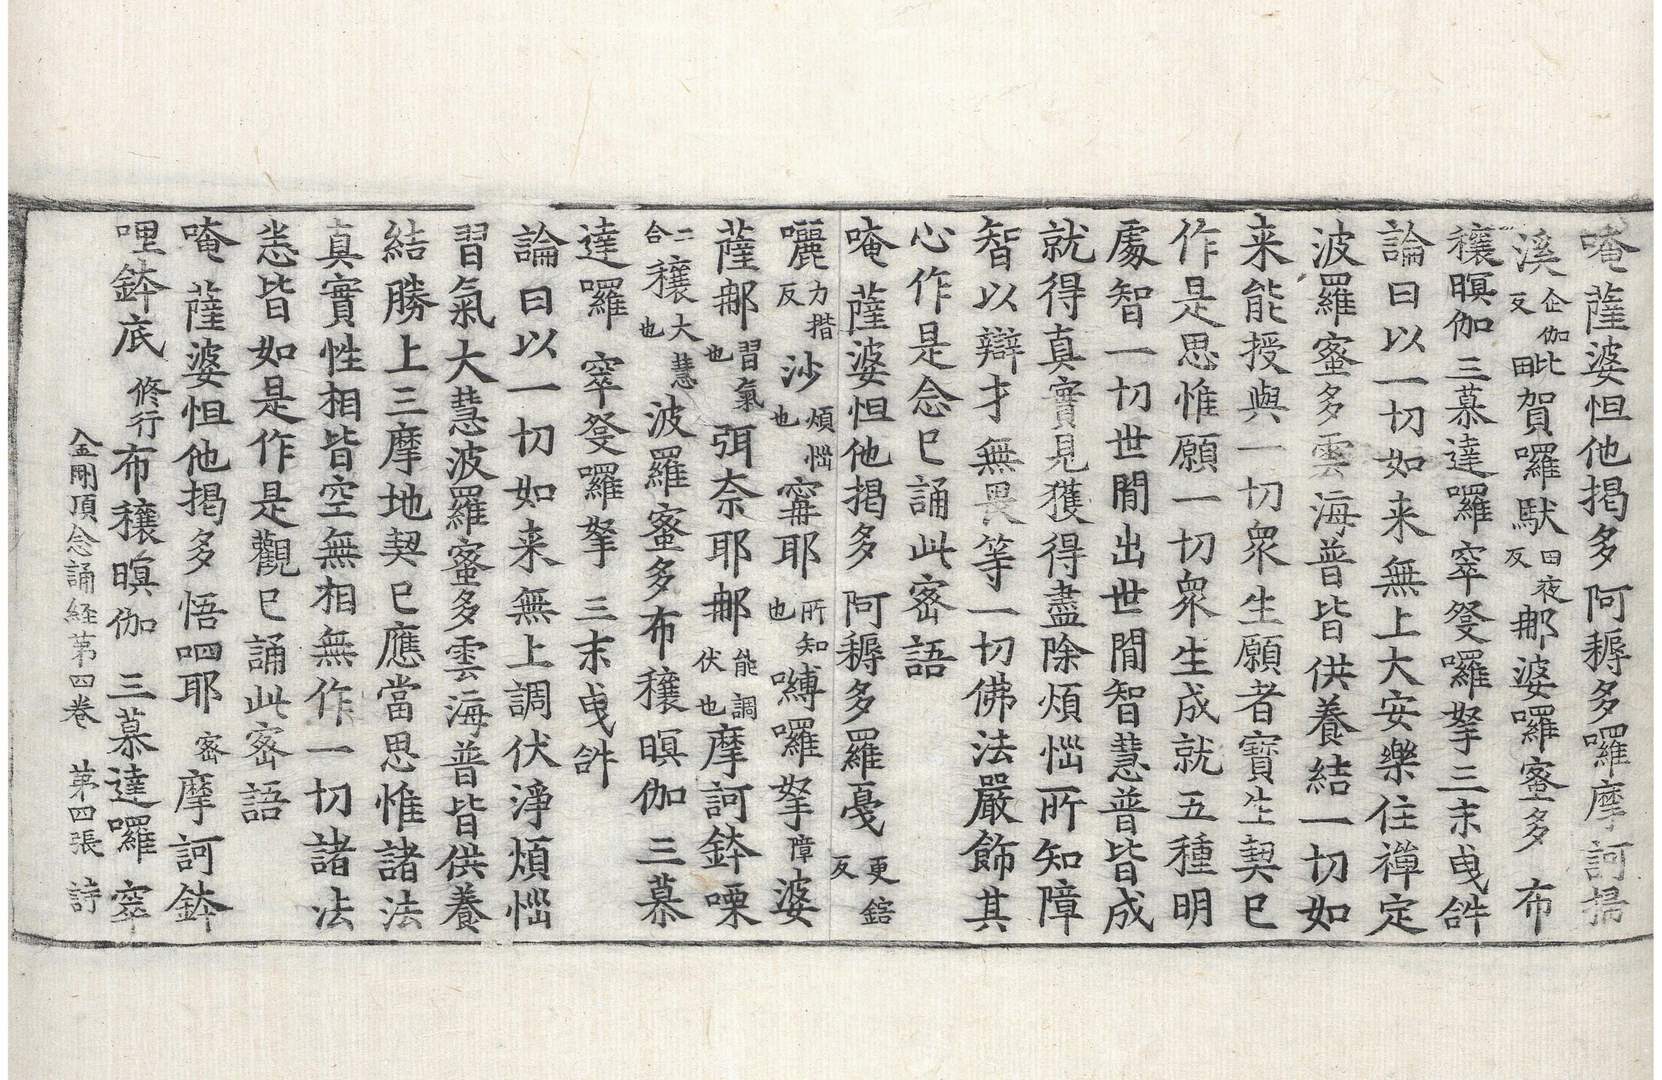 唵薩婆怛他掲多阿耨多囉摩訶掃
溪企伽反此田賀囉馱田夜反那婆囉蜜多布
穰暝伽三慕達囉窣發囉拏三末曳𤙖
論曰以一切如来無上大安樂住禪定
波羅蜜多雲海普皆供養結一切如
来能授與一切衆生願者寶生契已
作是思惟願一切衆生成就五種明
處智一切世間出世間智慧普皆成
就得真實見獲得盡除煩惱所知障
智以辯才無畏等一切佛法嚴飾其
心作是念已誦此密語
唵薩婆怛他掲多阿耨多羅戞更鎋反
囇力措反沙煩惱也寗耶所知也嚩囉拏障婆
薩那習氣也弭奈耶那能調伏也摩訶鉢㗚
二合穰大慧也波羅蜜多布穰暝伽三慕
達囉窣發囉拏三末曳𤙖
論曰以一切如来無上調伏淨煩惱
習氣大慧波羅蜜多雲海普皆供養
結勝上三摩地契已應當思惟諸法
真實性相皆空無相無作一切諸法
悉皆如是作是觀已誦此密語
唵薩婆怛他掲多悟呬耶密摩訶鉢
哩鉢底修行布穰暝伽三慕達囉窣
金剛頂念誦経第四卷 第四張 詩